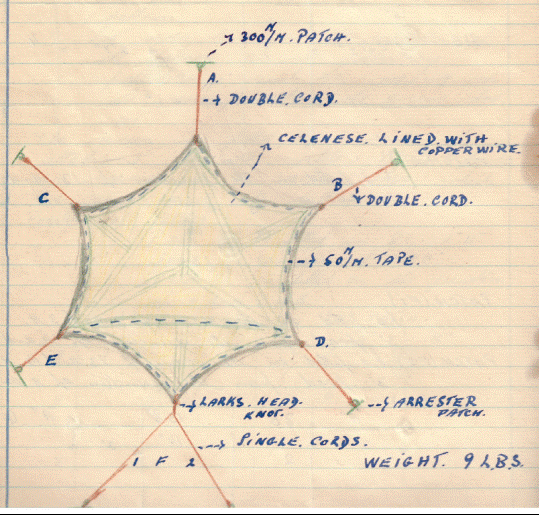 300 M/M. PATCH.
A.
DOUBLE. CORD.
CELENESE. LINED. WITH
COPPER WIRE.
B
DOUBLE. CORD.
C
50 M/M. TAPE.
D.
E
LARKS. HEAD.
KNOT.
ARRESTER
PATCH.
SINGLE. CORDS.
1 F 2
WEIGHT. 9 LBS.